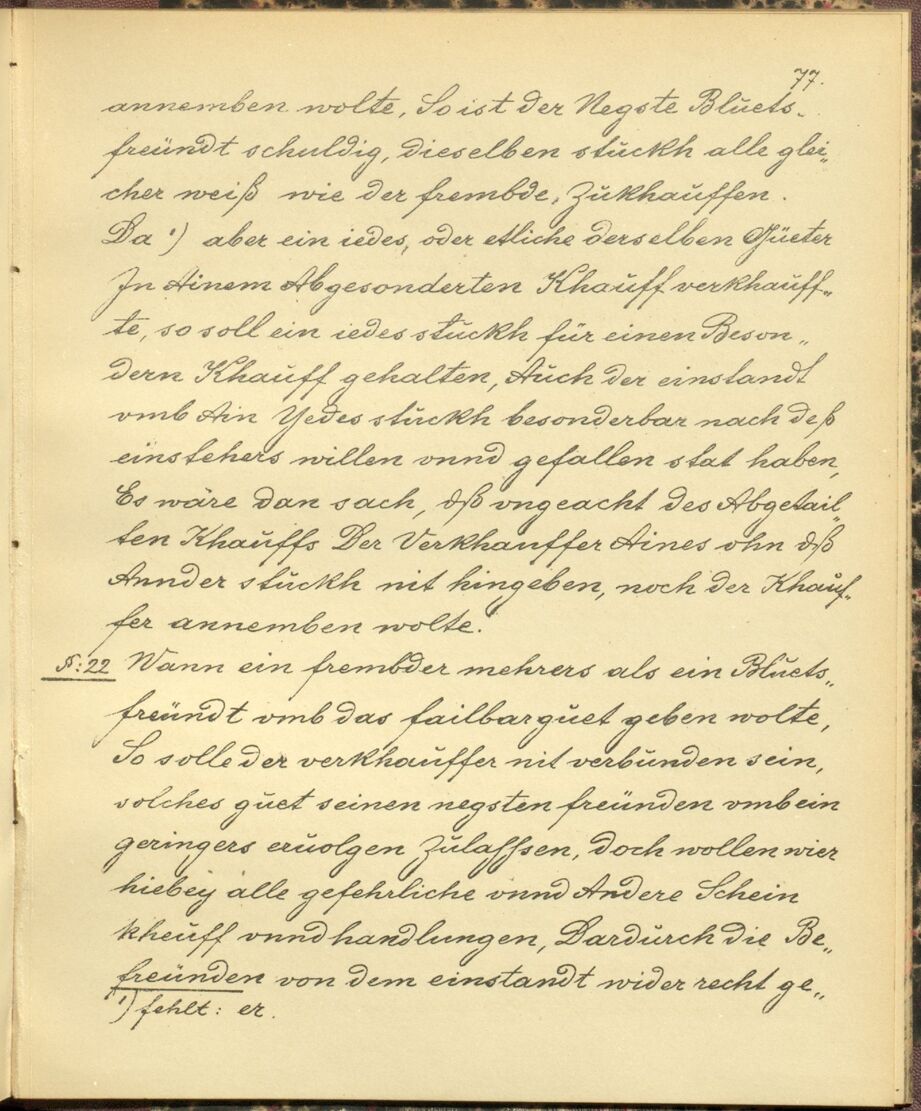 77.
annemben wolte, So ist der Negste Bluets„
freündt schuldig, dieselben stuckh alle glei„
cher weiß wie der frembde, Zukhauffen.
Da ¹) aber ein iedes, oder etliche derselben Güeter
In Ainem Abgesonderten Khauff verkhauff„
te, so soll ein iedes stuckh für einen Beson„
dern Khauff gehalten, Auch der einstandt
vmb Ain Yedes stuckh besonderbar nach deß
einstehers willen vnnd gefallen stat haben,
Es wäre dan sach, dß vngeacht des Abgetail„
ten Khauffs Der Verkhauffer Aines ohn dß
Annder stuckh nit hingeben, noch der Khauf„
fer annemben wolte.
N: 22 Wann ein frembder mehrers als ein Bluets„
freündt vmb das failbar guet geben wolte,
So solle der verkhauffer nit verbunden sein,
solches guet seinen negsten freünden vmb ein
geringers eruolgen Zulassen, doch wollen wier
hiebey alle gefehrliche vnnd Andere Schein
kheuff vnnd handlungen, Dardurch die Be„
freünden von dem einstandt wider recht ge„
¹) fehlt: er.